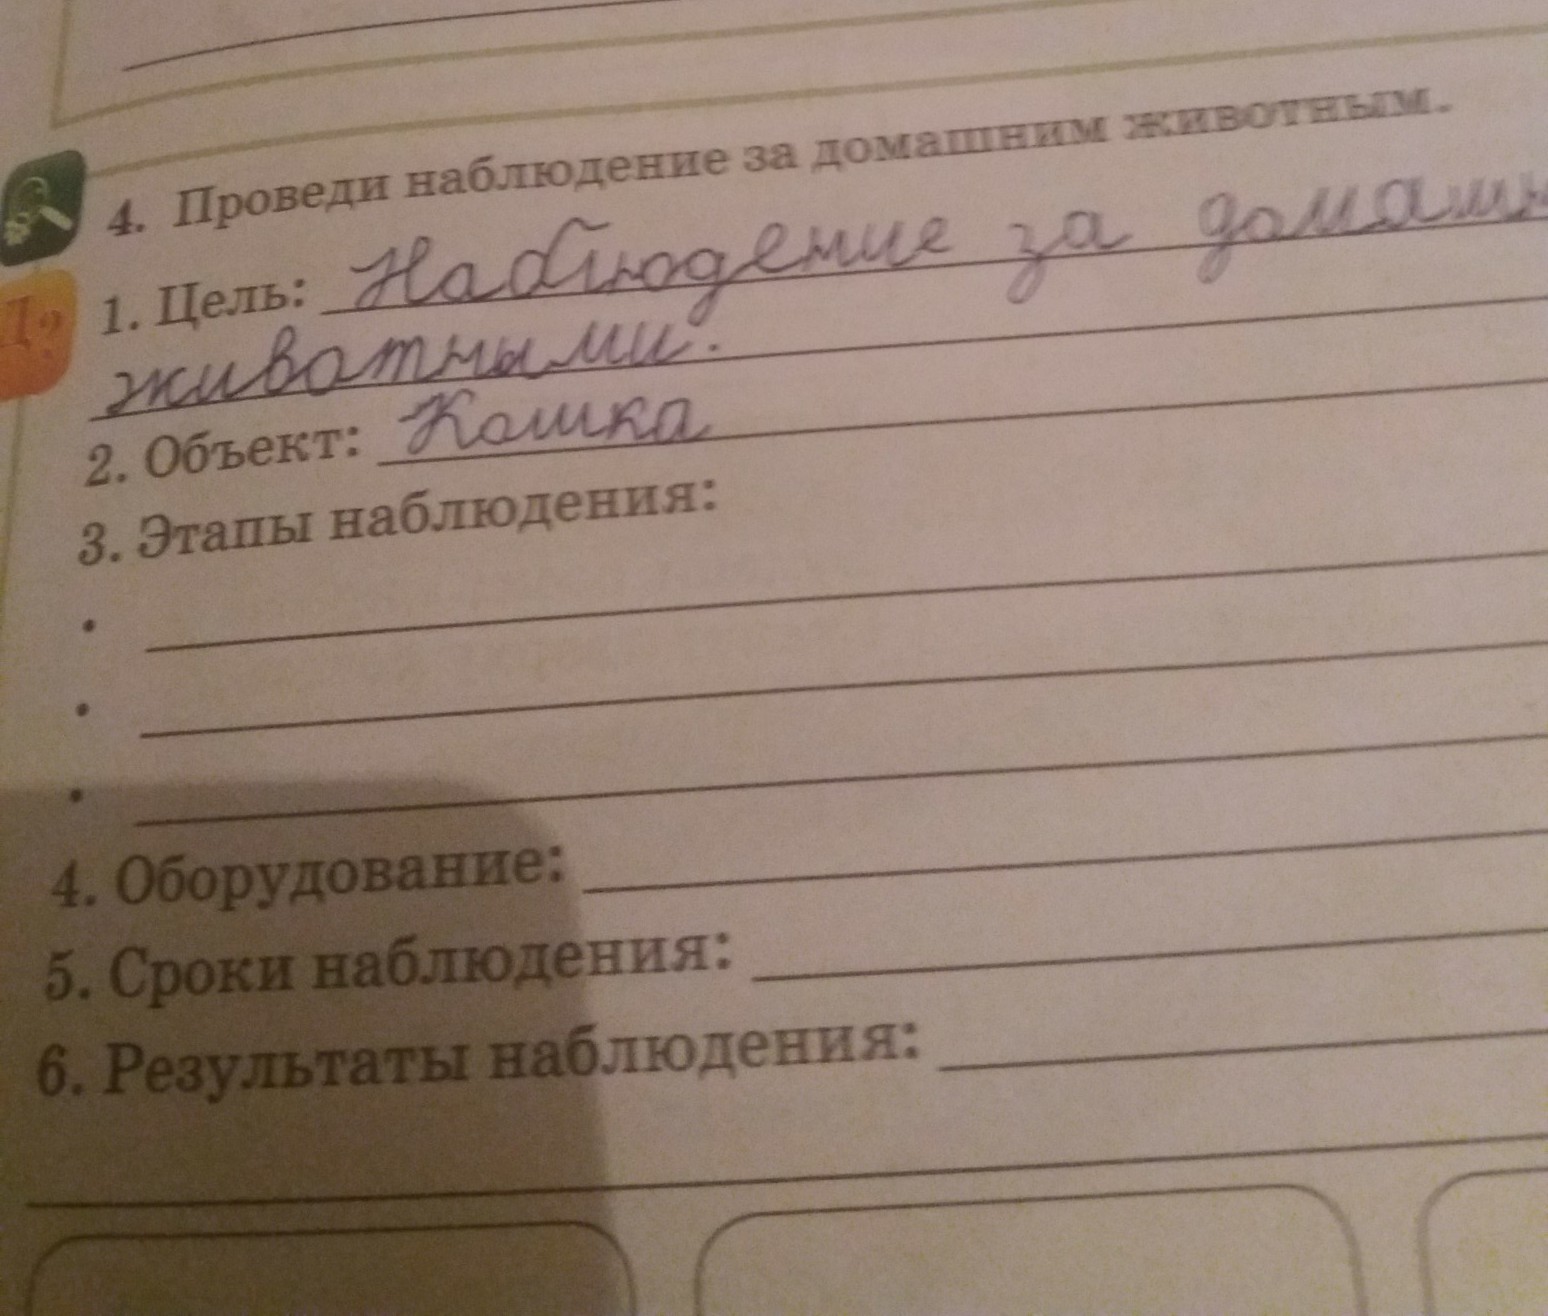 4. Проведи наблюдение за домашним животным.
1. Цель: Наблюдение за
животными.
2. Объект: Кошка
3. Этапы наблюдения:
•
•
•
4. Оборудование:
5. Сроки наблюдения:
6. Результаты наблюдения: